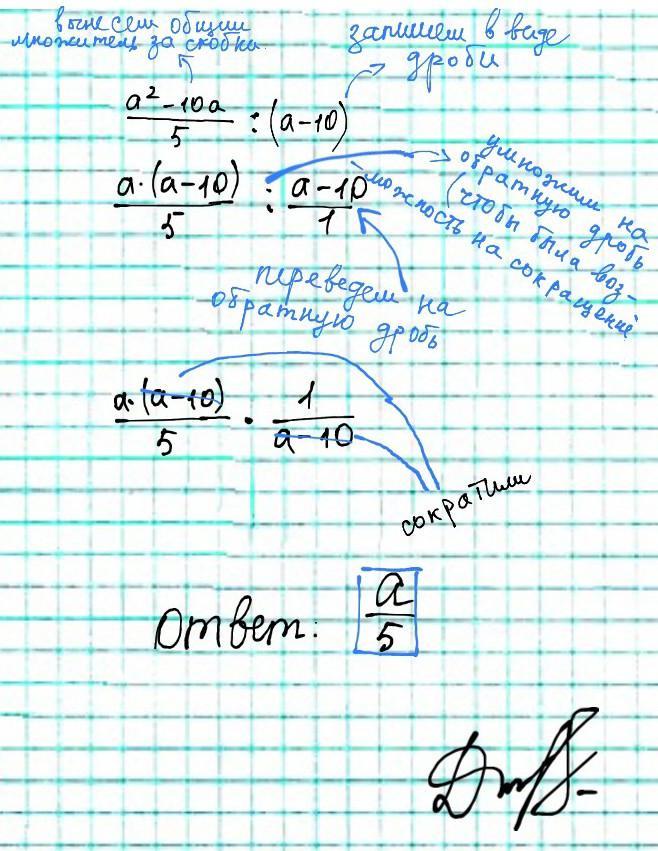 вынесем общий
множитель за скобки
запишем в виде
дроби
a² - 10a / 5 : (a-10)
a·(a-10) / 5 : a-10 / 1
умножим на
обратную дробь
(чтобы была воз-
можность на сокращение
переведем на
обратную дробь
a·(a-10) / 5 · 1 / a-10
сократили
Ответ: a / 5